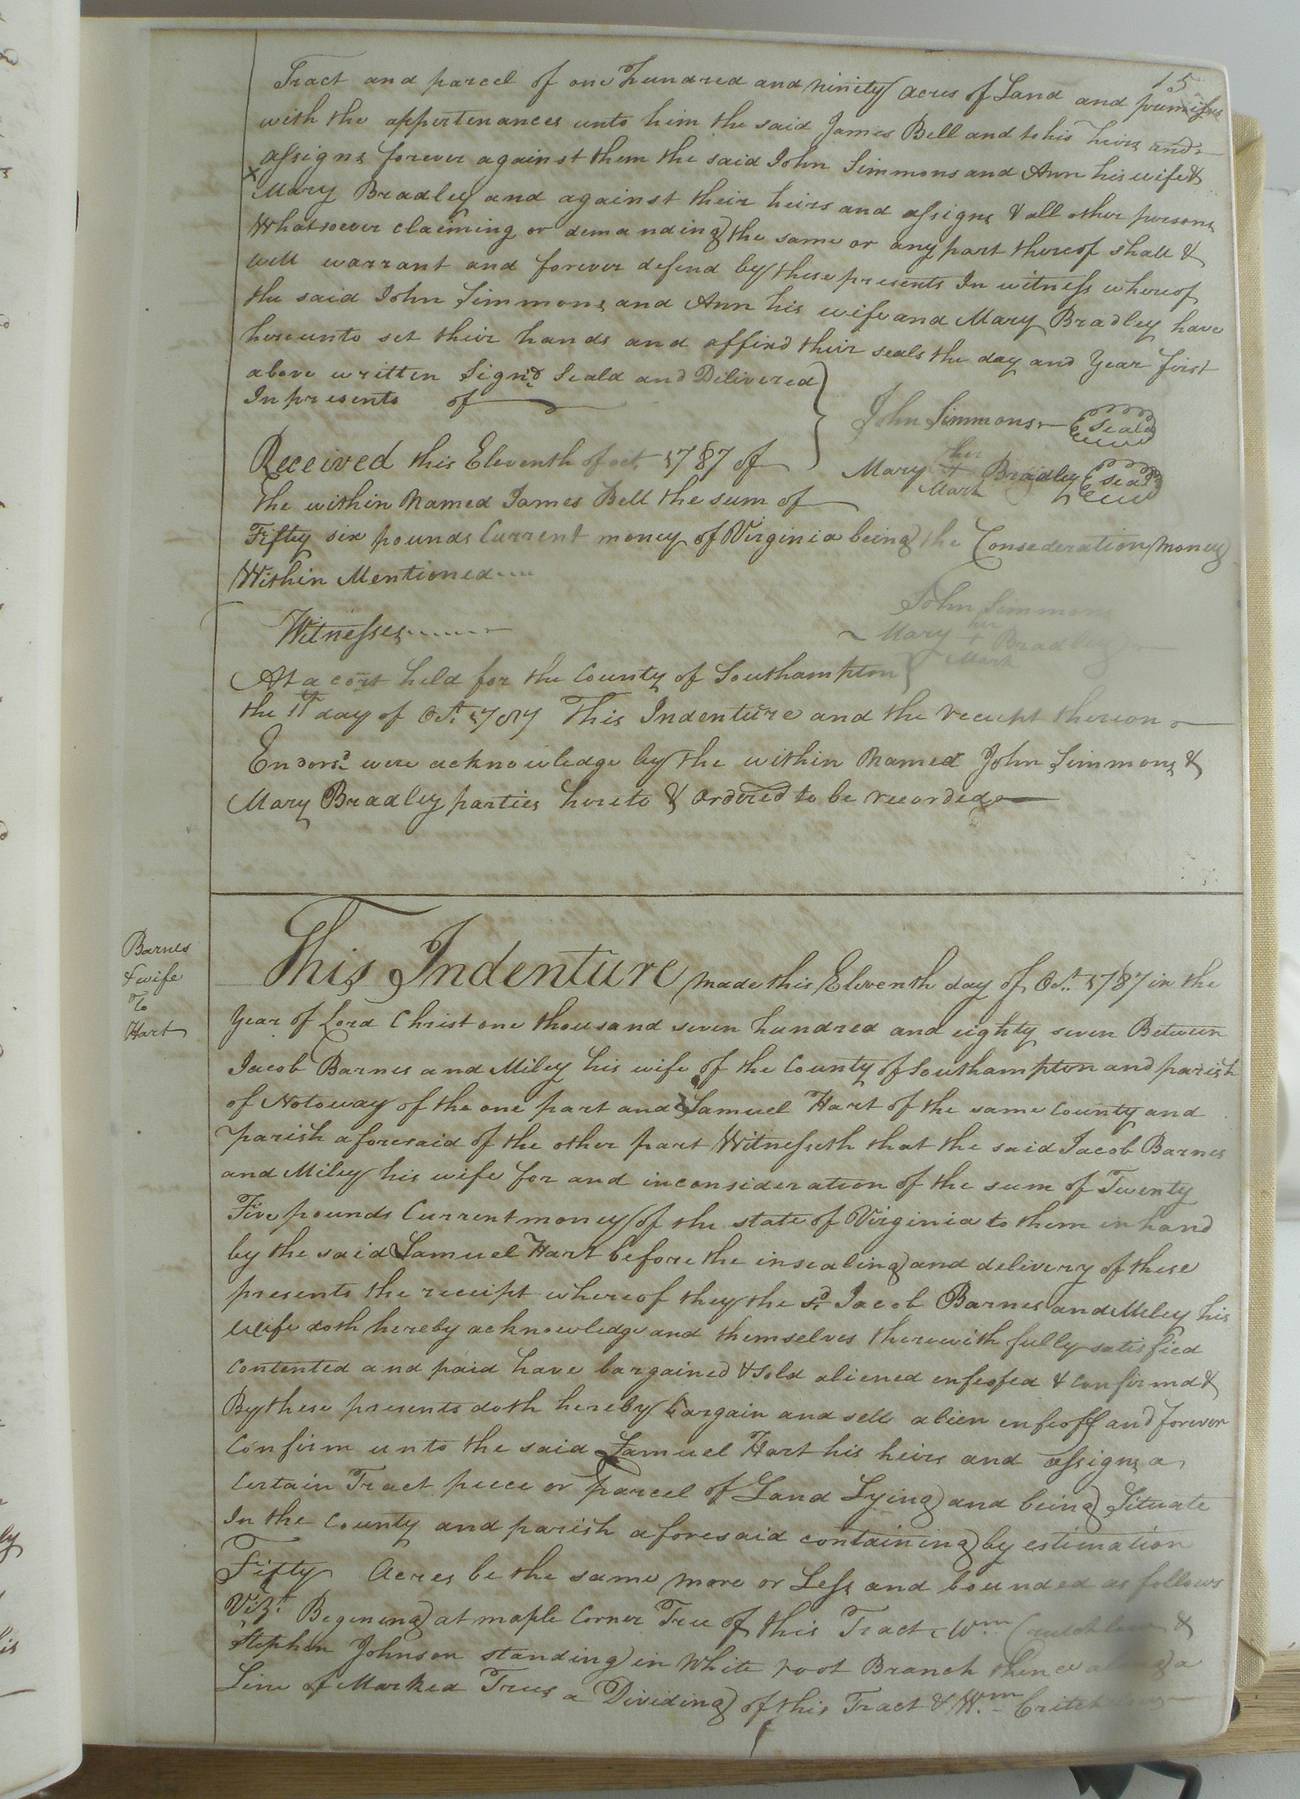 15
Tract and parcel of one hundred and ninity acres of Land and premises
with the appertenances unto him the said James Bell and to his heirs and
assigns forever against them the said John Simmons and Ann his wife &
x Mary Bradley and against their heirs and assigns & all other persons
Whatsoever claiming or demanding the same or any part thereof shall &
will warrant and forever defend by these presents In witness whereof
the said John Simmons and Ann his wife and Mary Bradley have
hereunto set their hands and affixd their seals the day and Year first
above written Signd Seald and Delivered
In presents of
John Simmons Seald
Received this Eleventh of oct 1787 of
Mary her + mark Bradley Seald
the within Named James Bell the sum of
Fifty six pounds Current money of Virginia being the Consederation money
Within Mentioned
John Simmons
Witnesses
Mary her + Mark Bradley
At a cort held for the County of Southampton
the 11th day of Oct. 1787 This Indenture and the receipt thereon
Endorsd were acknowledge by the within Named John Simmons &
Mary Bradley parties hereto & ordered to be recorded
Barnes
& wife
To
Hart
This Indenture made this Eleventh day of Oct. 1787 in the
Year of Lord Christ one thousand seven hundred and eighty seven Between
Jacob Barnes and Miley his wife of the County of Southampton and parish
of Notoway of the one part and Samuel Hart of the same County and
parish aforesaid of the other part Witnesseth that the said Jacob Barnes
and Miley his wife for and inconsideration of the sum of Twenty
Five pounds Current money of the state of Virginia to them in hand
by the said Samuel Hart before the insealing and delivery of these
presents the receipt whereof they the sd Jacob Barnes and Miley his
wife doth hereby acknowledge and themselves therewith fully satisfied
contented and paid have bargained & sold aliened enfeofed & confirmd &
By these presents doth hereby bargain and sell alien enfeoff and forever
Confirm unto the said Samuel Hart his heirs and assigns a
Certain Tract piece or parcel of Land Lying and being Situate
In the County and parish aforesaid containing by estimation
Fifty Acres be the same more or Less and bounded as follows
Vizt. Begening at maple Corner Tree of this Tract Wm &
Stephen Johnson standing in White root Branch thence along a
Line of Marked Trees a Dividing of this Tract & Wm.